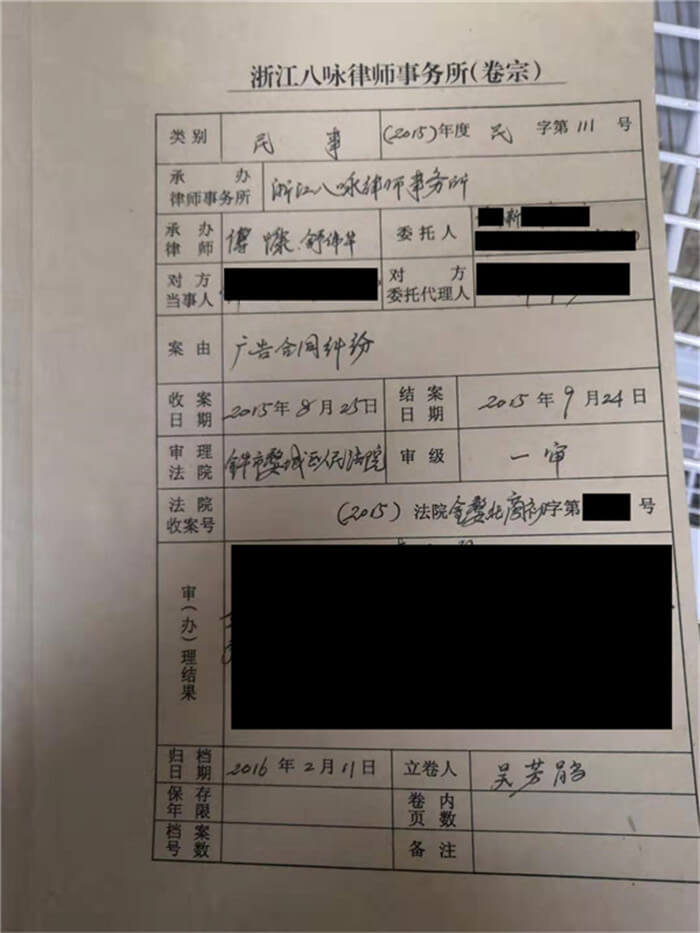 浙江八咏律师事务所(卷宗)
类别 民 事 (2015)年度 民 字第 111 号
承办律师事务所 浙江八咏律师事务所
承办律师 傅 舒伟华 委托人 新
对方当事人 对方委托代理人
案由 广告合同纠纷
收案日期 2015年8月25日 结案日期 2015年9月24日
审理法院 金华市婺城区人民法院 审级 一审
法院收案号 (2015)法院金婺北商初字第 号
审(办)理结果
归档日期 2016年2月11日 立卷人 吴芳
保存年限 卷内页数
档案号数 备注